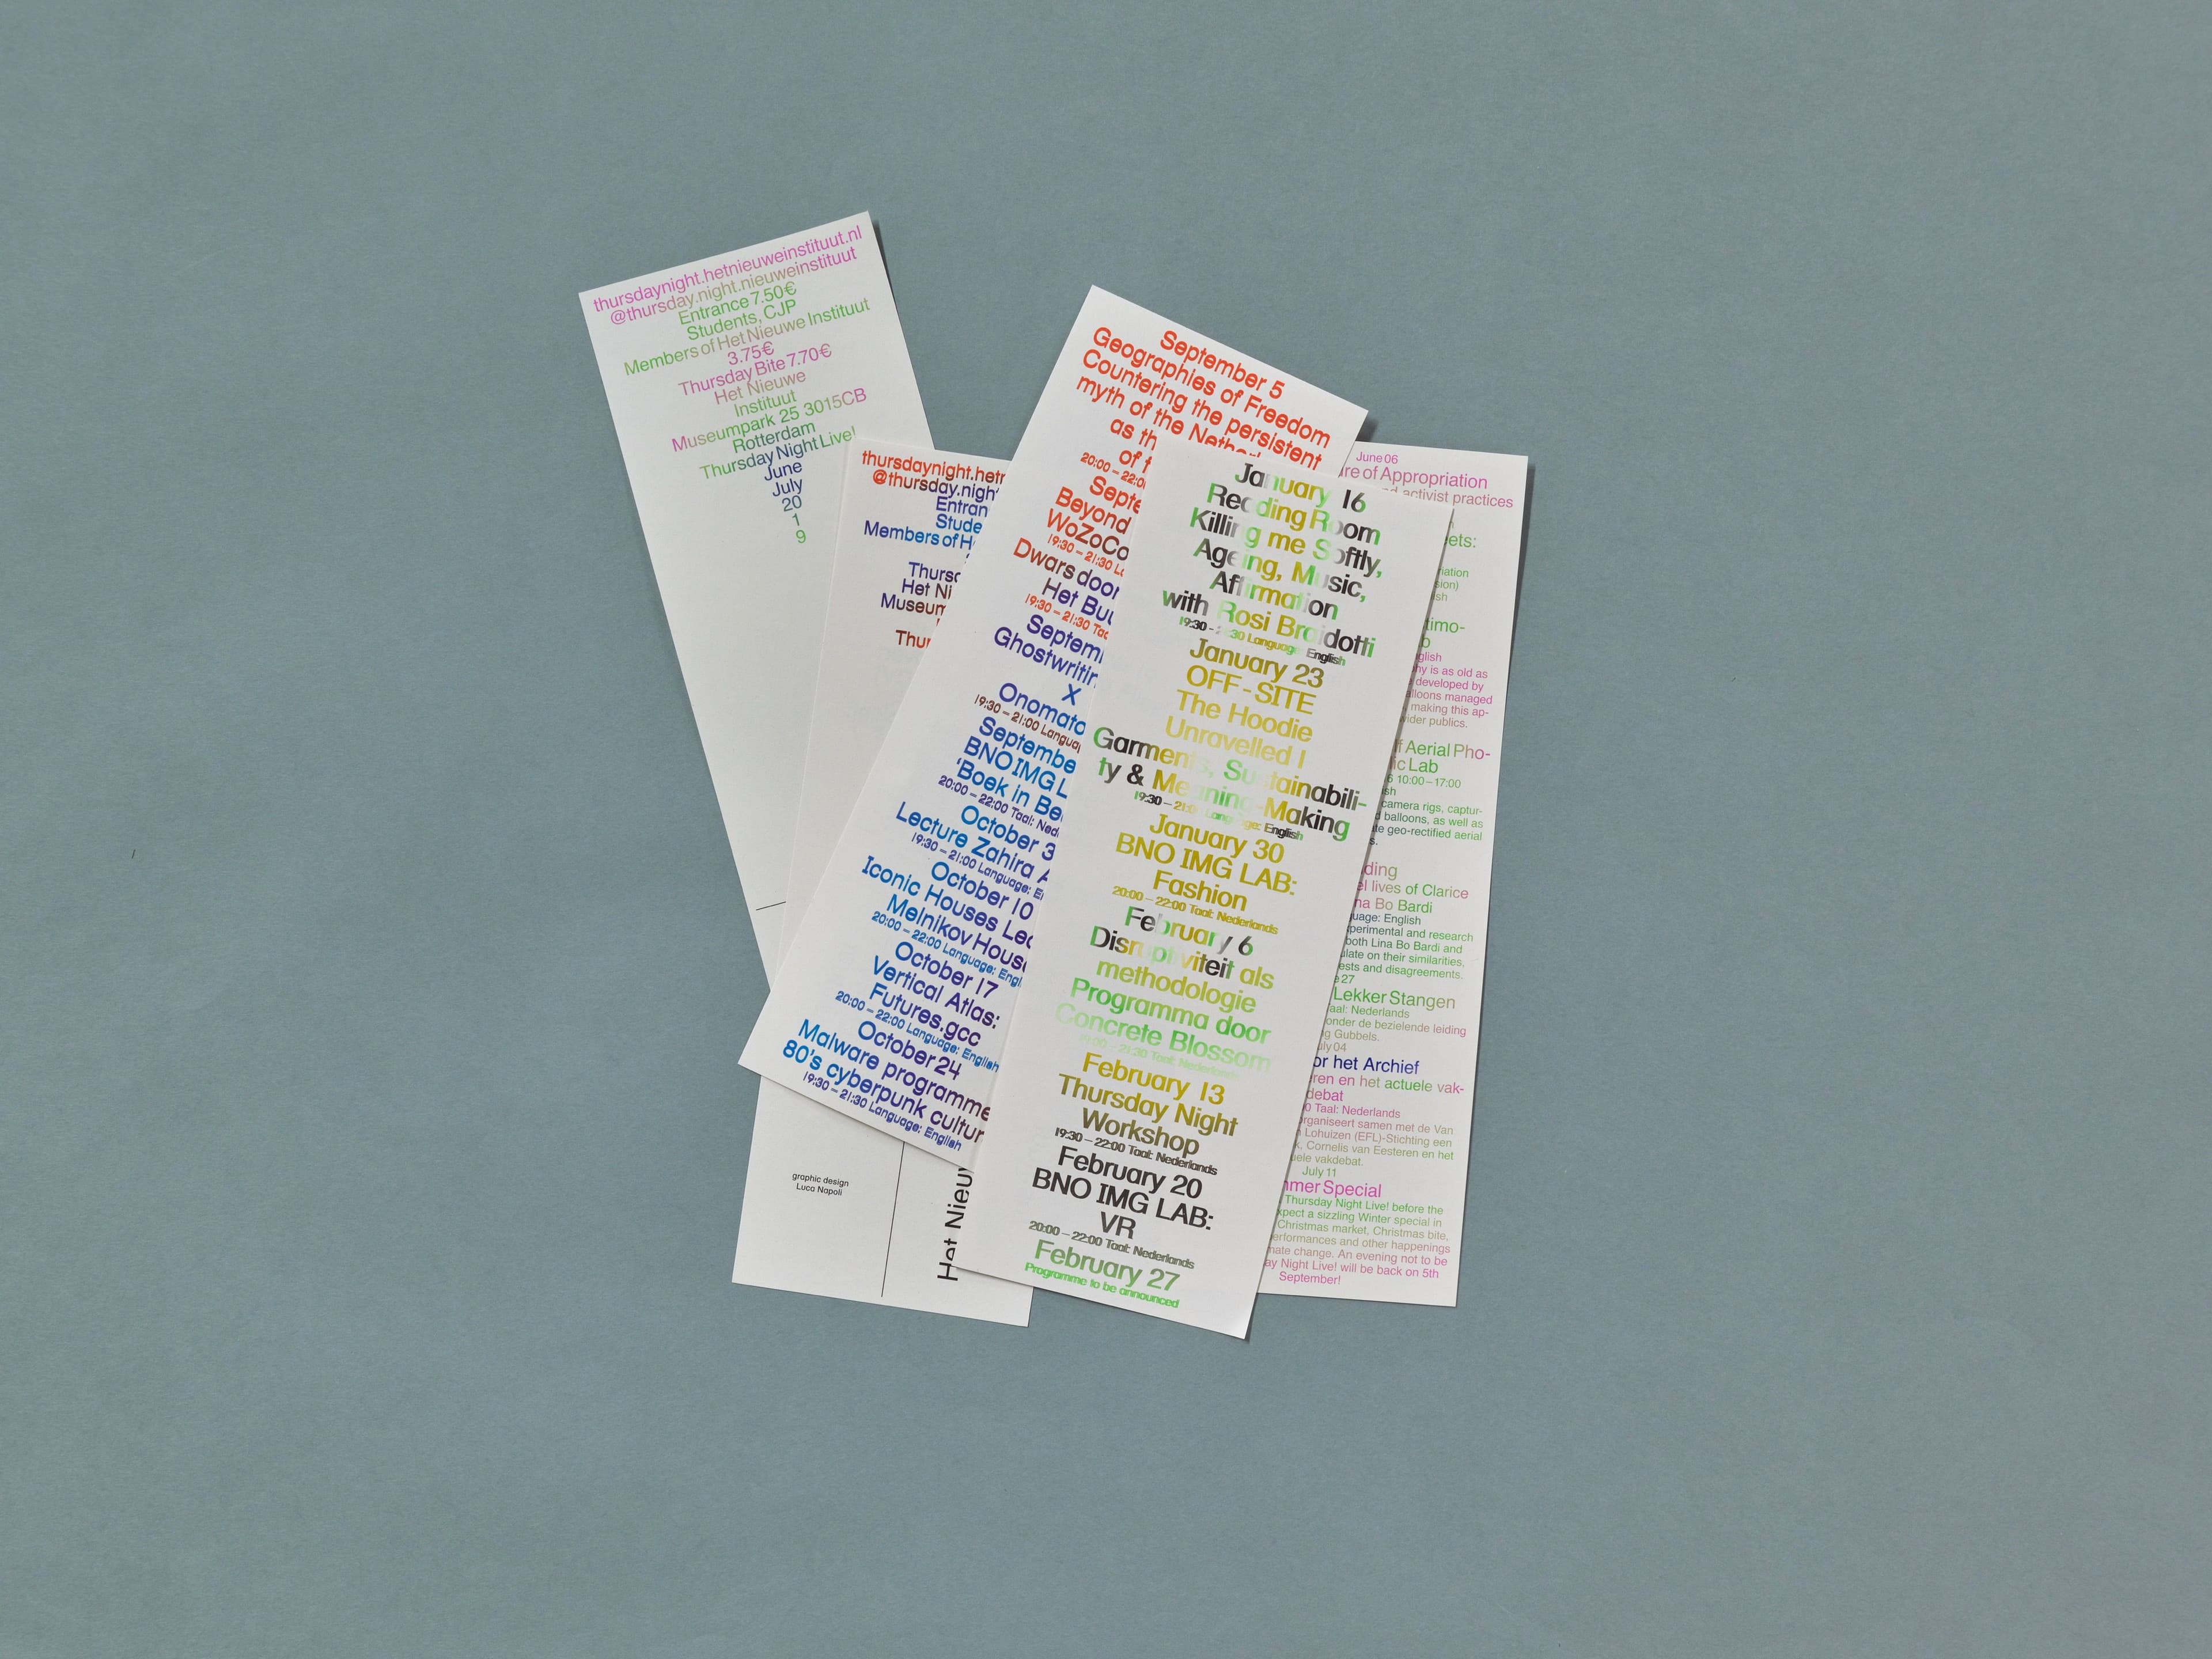 thursdaynight.hetnieuweinstituut.nl
@thursday.night.nieuweinstituut
Entrance 7.50€
Students, CJP
Members of Het Nieuwe Instituut
3.75€
Thursday Bite 7.70€
Het Nieuwe
Instituut
Museumpark 25 3015CB
Rotterdam
Thursday Night Live!
June
July
20
1
9
thursdaynight.hetn
@thursday.nigh
Entran
Stude
Members of H
Thursd
Het Ni
Museum
Thur
graphic design
Luca Napoli
Het Nieuw
September 5
Geographies of Freedom
Countering the persistent
myth of the Netherl
as th
of t
20:00 – 22:0
Septe
Beyond
WoZoCo
19:30 – 21:30 La
Dwars door
Het Buu
19:30 – 21:30 Taa
Septem
Ghostwritin
X
Onomato
19:30 – 21:00 Languag
Septembe
BNO IMG L
'Boek in Be
20:00 – 22:00 Taal: Ned
October 3
Lecture Zahira A
19:30 – 21:00 Language: E
October 10
Iconic Houses Lec
Melnikov House
20:00 – 22:00 Language: Engl
October 17
Vertical Atlas:
Futures.gcc
20:00 – 22:00 Language: English
October 24
Malware programme
80's cyberpunk cultur
19:30 – 21:30 Language: English
January 16
Reading Room
Killing me Softly,
Ageing, Music,
Affirmation
with Rosi Braidotti
19:30 - 21:30 Language: English
January 23
OFF-SITE
The Hoodie
Unravelled I
Garments, Sustainabili-
ty & Meaning-Making
19:30 – 21:00 Language: English
January 30
BNO IMG LAB:
Fashion
20:00 – 22:00 Taal: Nederlands
February 6
Disruptiviteit als
methodologie
Programma door
Concrete Blossom
19:00 – 21:30 Taal: Nederlands
February 13
Thursday Night
Workshop
19:30 – 22:00 Taal: Nederlands
February 20
BNO IMG LAB:
VR
20:00 – 22:00 Taal: Nederlands
February 27
Programme to be announced
June 06
re of Appropriation
d activist practices
eets:
iation
sion)
sh
timo-
b
glish
hy is as old as
developed by
alloons managed
, making this ap-
wider publics.
f Aerial Pho-
ic Lab
6 10:00 – 17:00
sh
camera rigs, captur-
d balloons, as well as
te geo-rectified aerial
s.
ding
el lives of Clarice
na Bo Bardi
uage: English
xperimental and research
both Lina Bo Bardi and
ulate on their similarities,
ests and disagreements.
e 27
Lekker Stangen
aal: Nederlands
onder de bezielende leiding
g Gubbels.
uly 04
or het Archief
ren en het actuele vak-
debat
0 Taal: Nederlands
organiseert samen met de Van
n Lohuizen (EFL)-Stichting een
k, Cornelis van Eesteren en het
uele vakdebat.
July 11
mmer Special
Thursday Night Live! before the
xpect a sizzling Winter special in
Christmas market, Christmas bite,
erformances and other happenings
mate change. An evening not to be
ay Night Live! will be back on 5th
September!